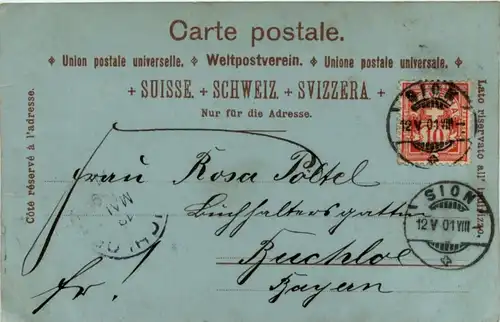 Carte postale.
Union postale universelle. Weltpostverein. Unione postale universale.
SUISSE. SCHWEIZ. SVIZZERA.
Nur für die Adresse.
Côté réservé à l'adresse.
Lato riservato all' indirizzo.
SION
12 V 01 VIII
10
SION
12 V 01 VIII
Frau Rosa Pöltel
Buchhaltersgattin
Buchloe
Bayern
fr.
13
MAI